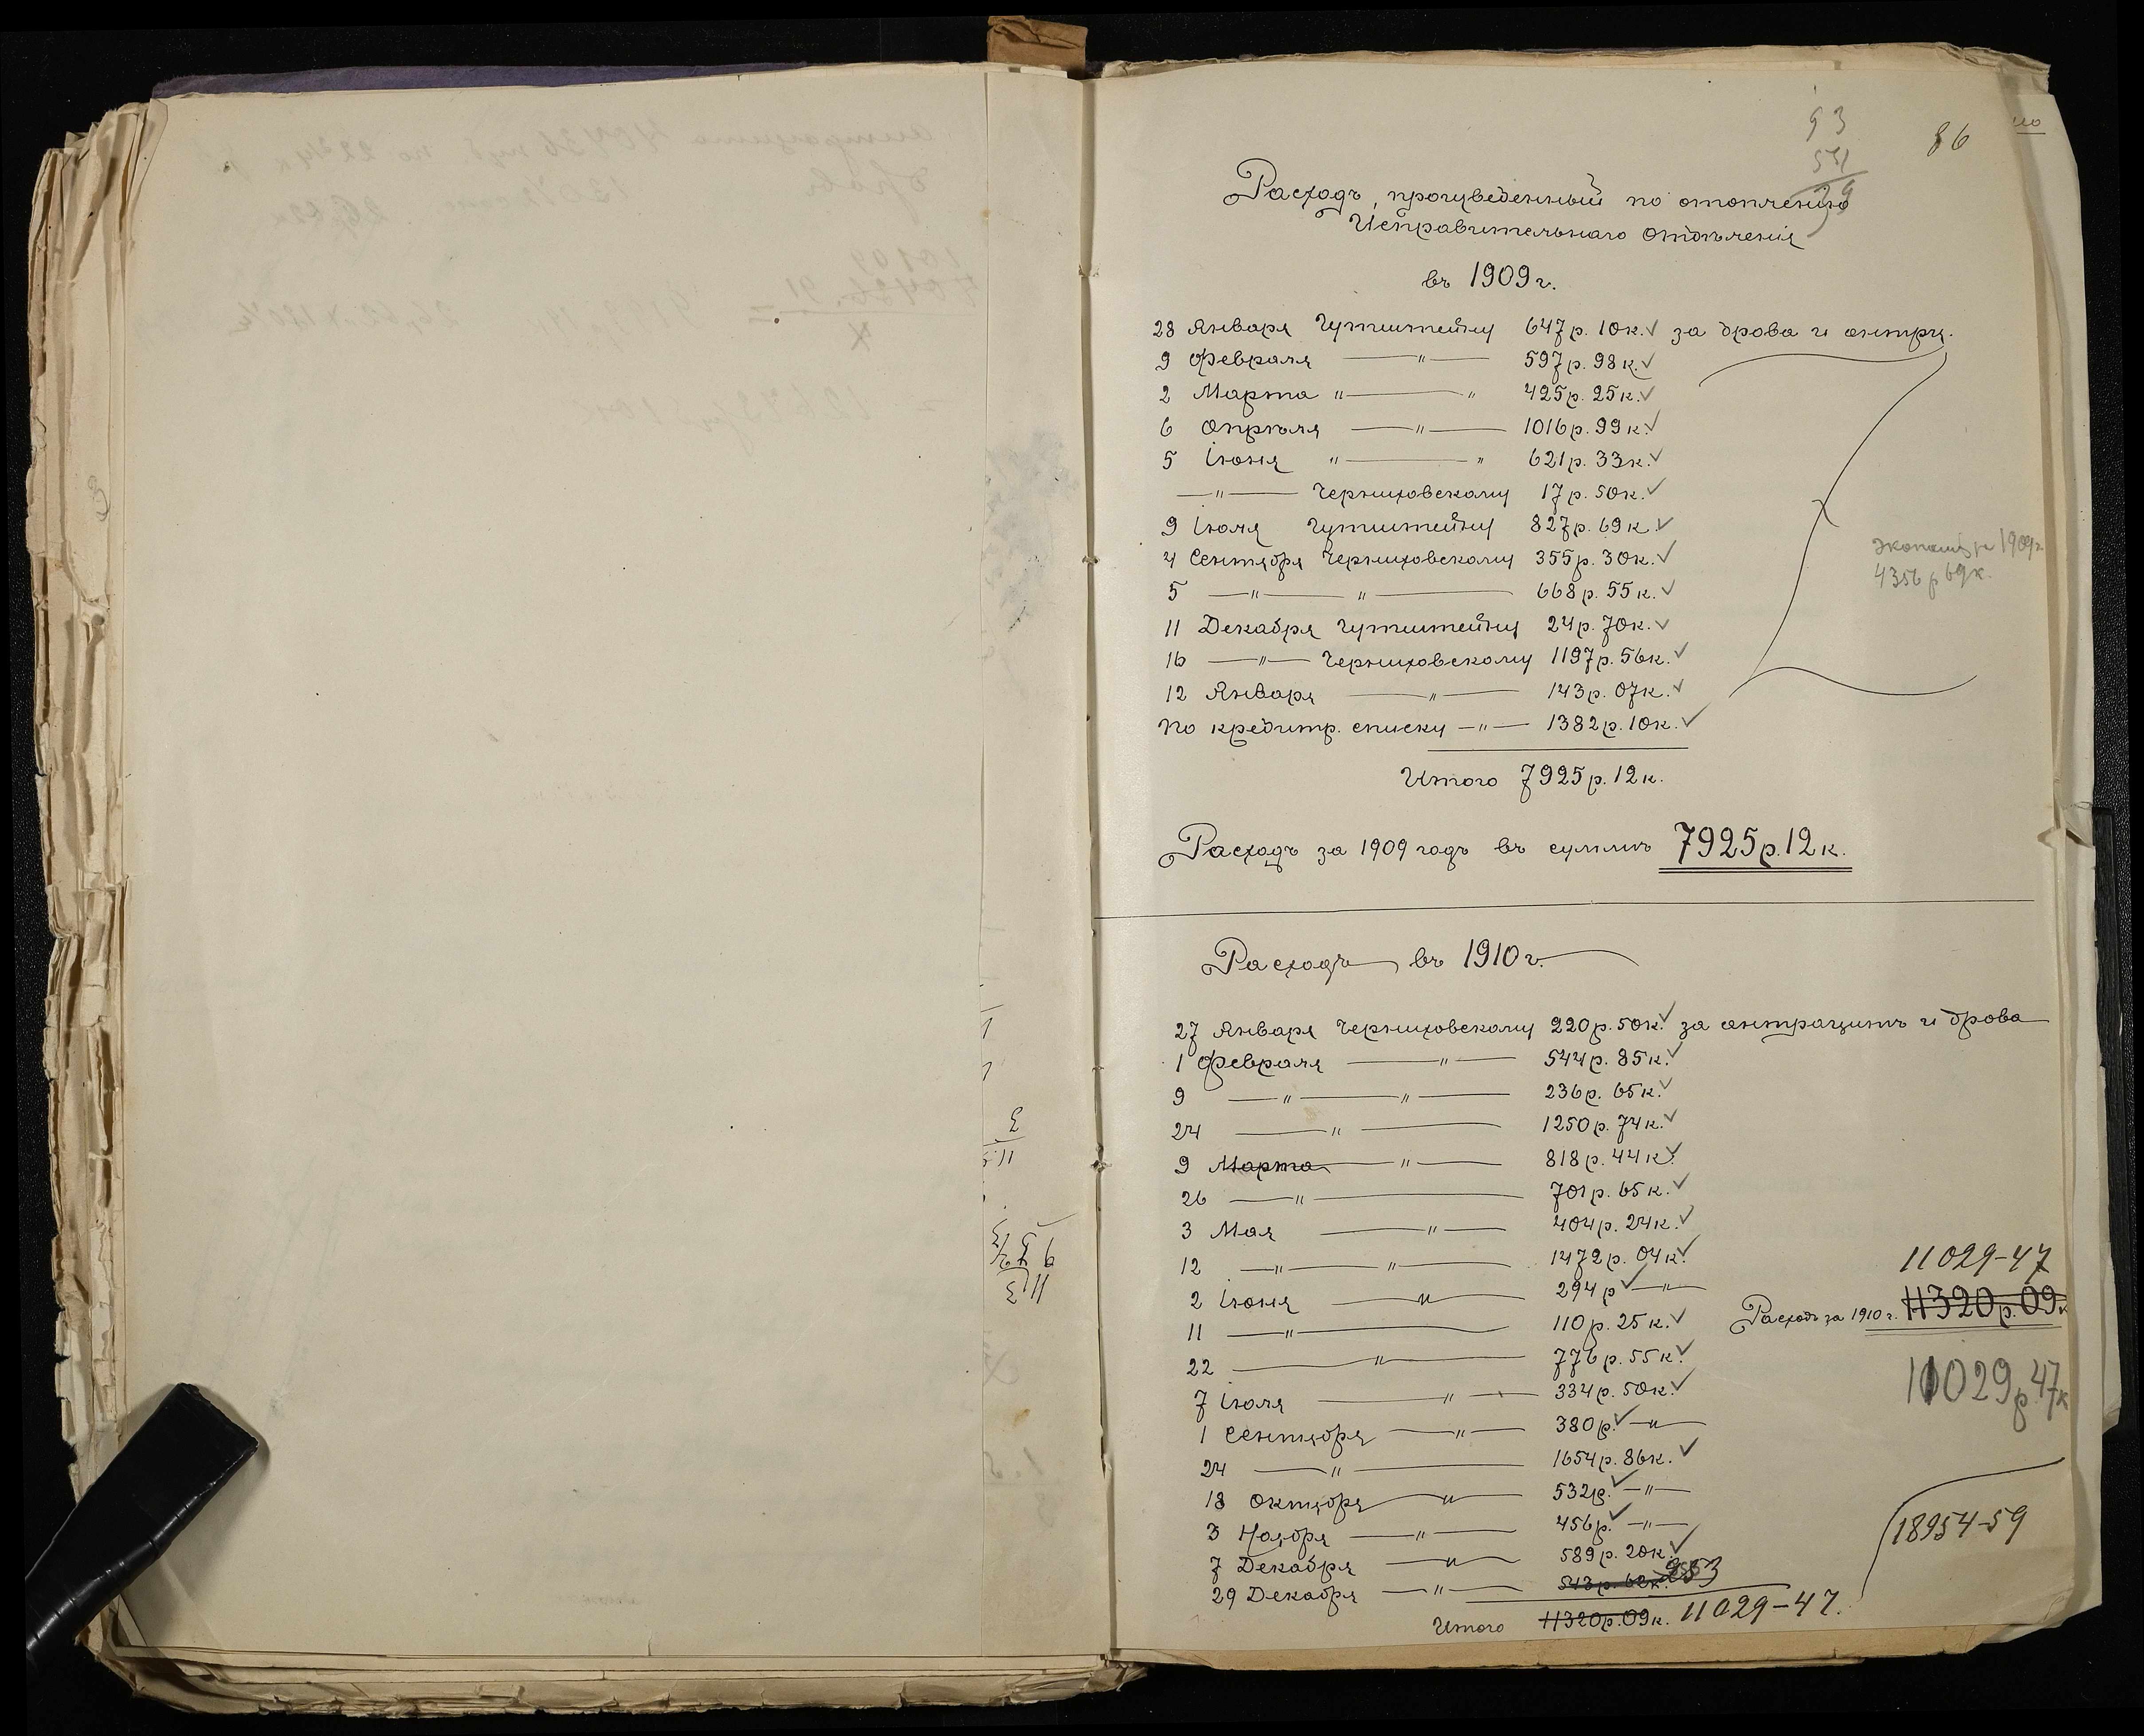 93
86
Расходъ, произведенный по отопленію
Исправительнаго Отдѣленія
въ 1909 г.
28 Января Гутштейну 647 р. 10 к. за дрова и антрц.
9 Февраля —"— 597 р. 98 к.
2 Марта "—" 425 р. 25 к.
6 Апрѣля —"— 1016 р. 99 к.
5 Іюня "—" 621 р. 33 к.
—"— Черниховскому 17 р. 50 к.
9 Іюля Гутштейну 827 р. 69 к.
4 Сентября Черниховскому 355 р. 30 к.
экономія 1909 г.
4356 р 69 к.
5 —"—"— 668 р. 55 к.
11 Декабря Гутштейну 24 р. 70 к.
16 —"— Черниховскому 1197 р. 56 к.
12 Января —"— 143 р. 07 к.
По кредитр. списку —"— 1382 р. 10 к.
Итого 7925 р. 12 к.
Расходъ за 1909 годъ въ суммѣ 7925 р. 12 к.
Расходъ въ 1910 г.
27 Января Черниховскому 220 р. 50 к. за антрацитъ и дрова
1 Февраля —"— 544 р. 85 к.
9 —"—"— 236 р. 65 к.
24 —"— 1250 р. 74 к.
9 Марта —"— 818 р. 44 к.
26 —"— 701 р. 65 к.
3 Мая —"— 404 р. 24 к.
12 —"—"— 1472 р. 04 к.
11029-47
2 Іюня —"— 294 р —"—
11 —"— 110 р. 25 к. Расходъ за 1910 г. 11320 р. 09 к
22 —"— 776 р. 55 к.
11029 р 47 к
7 Іюля —"— 334 р. 50 к.
1 Сентября —"— 380 р. —"—
24 —"— 1654 р. 86 к.
18 Октября —"— 532 р. —"—
3 Ноября —"— 456 р. —"—
18954-59
7 Декабря —"— 589 р. 20 к.
29 Декабря —"— 543 р. 62 к. 253
Итого 11320 р. 09 к. 11029-47.